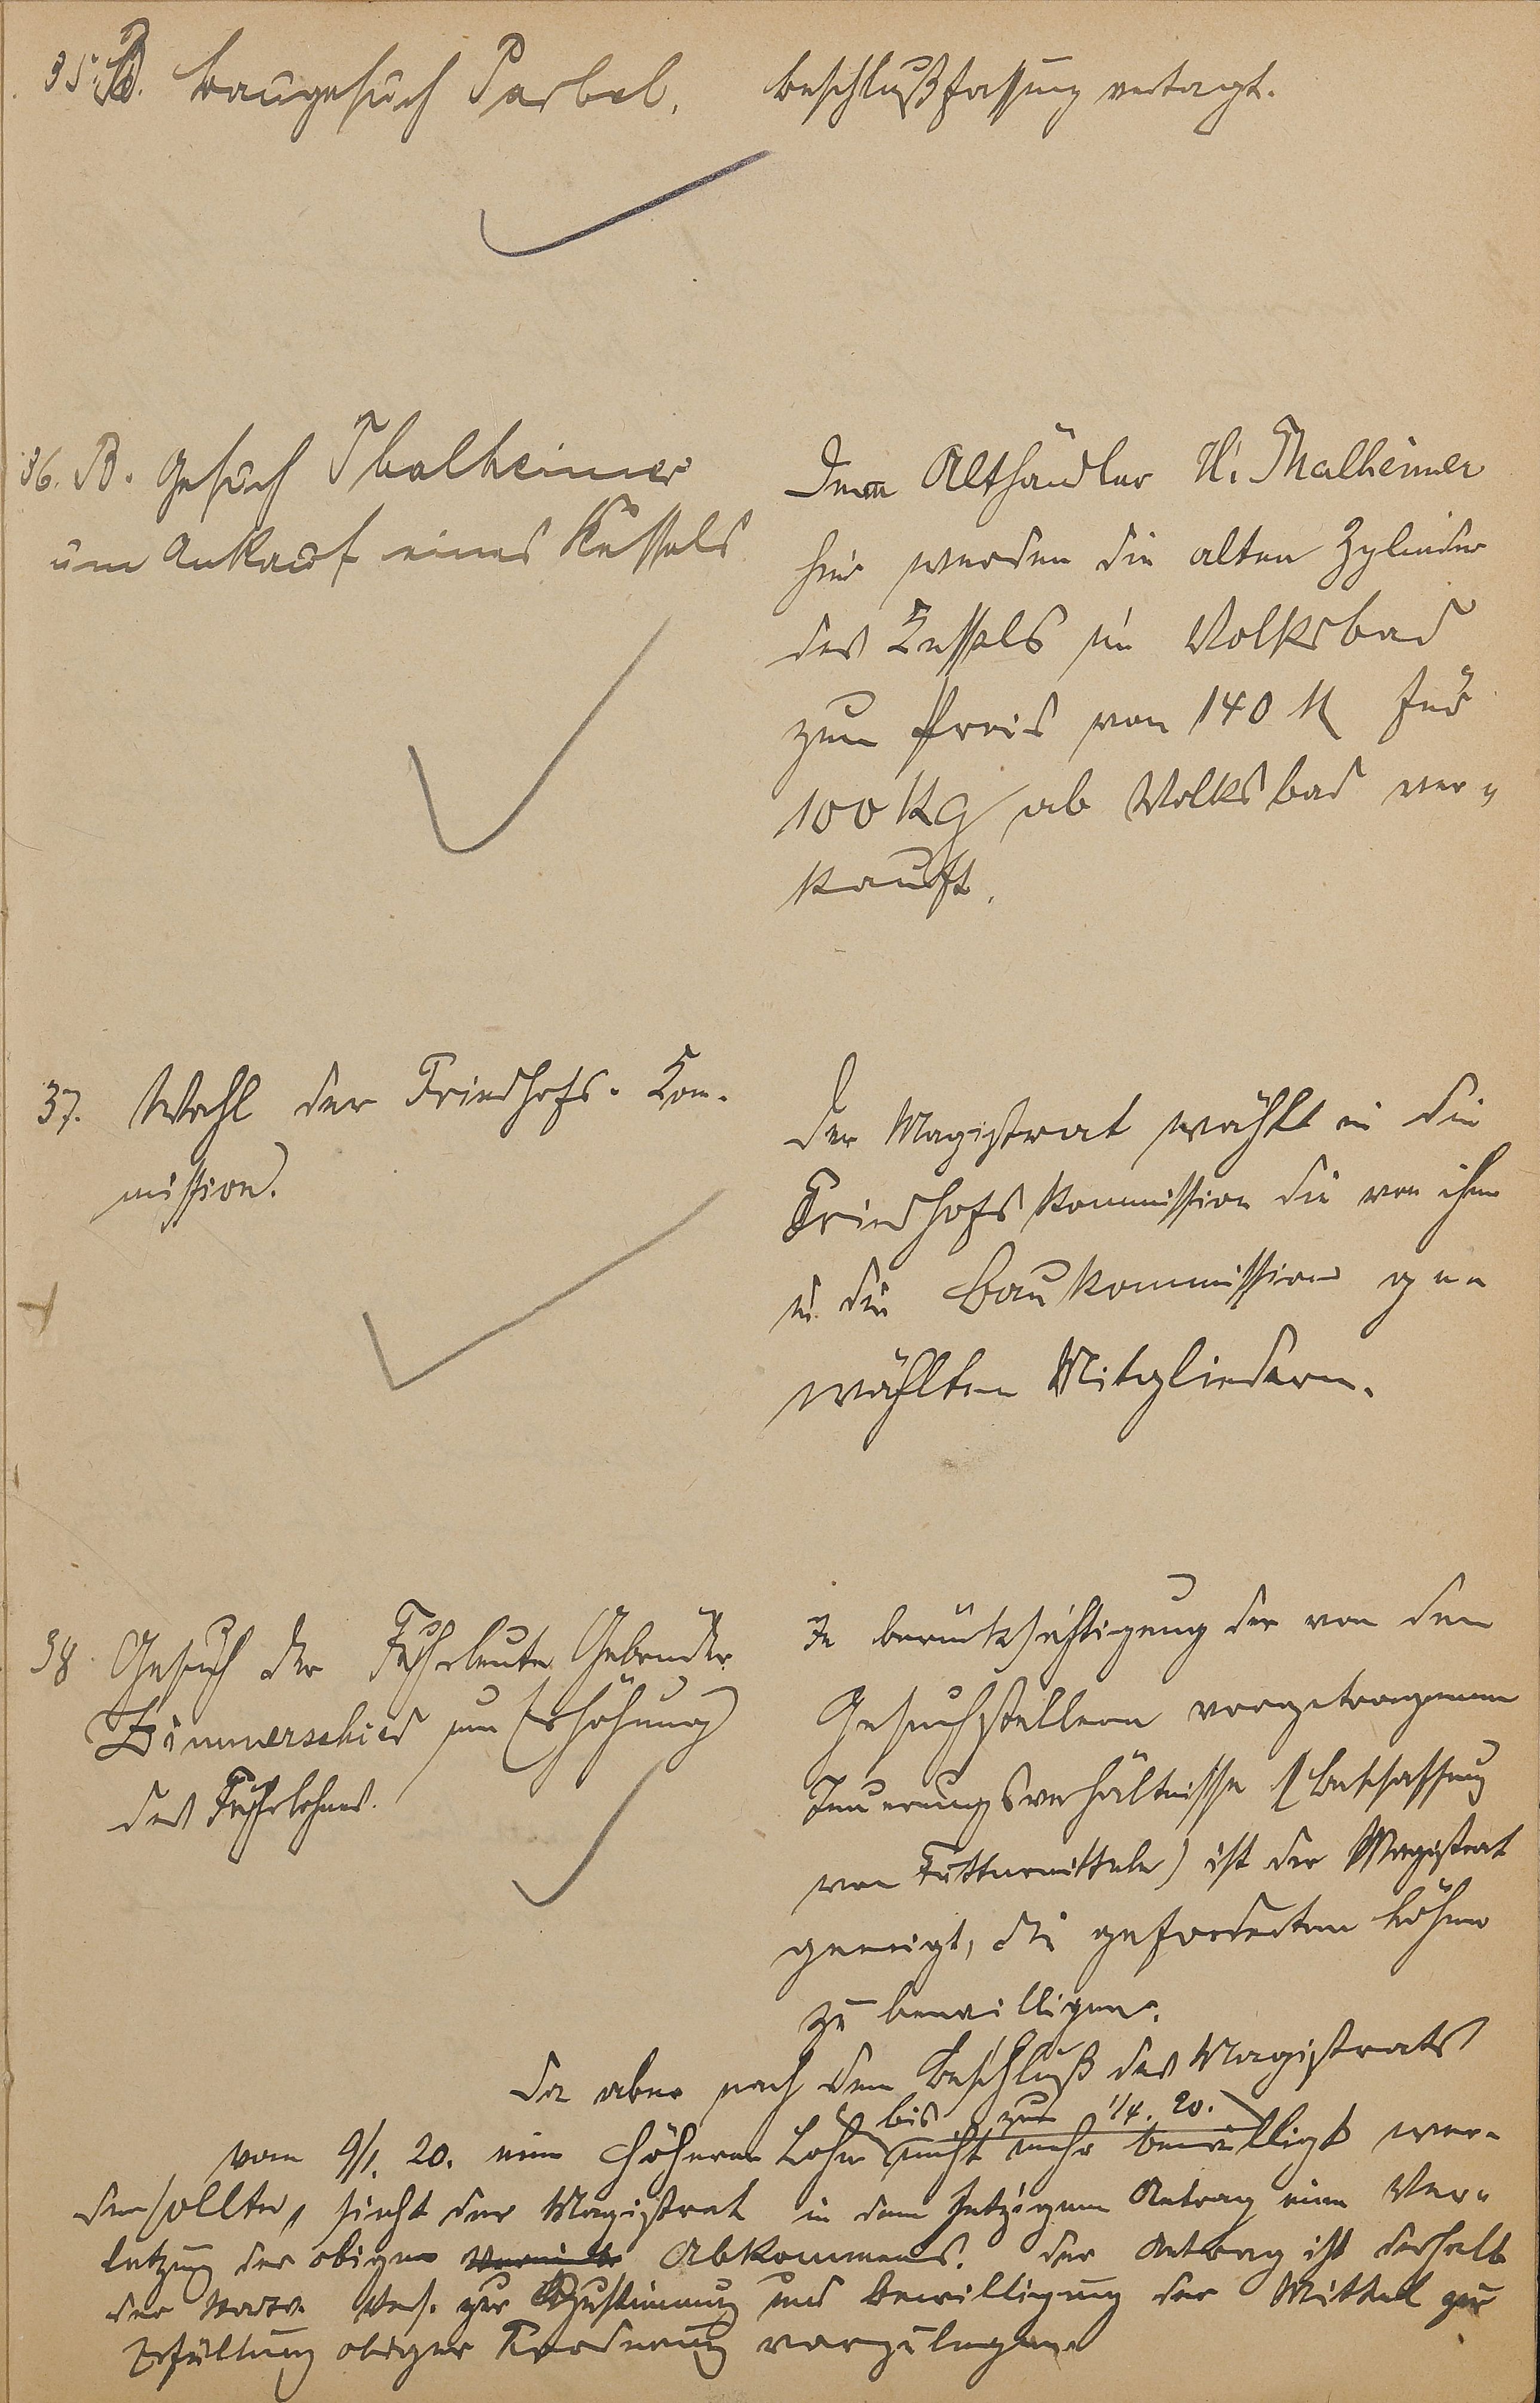 35. B. Baugesuch Parbel.
Beschlußfassung vertagt.
36. B. Gesuch Thalheimer
um Ankauf eines Kessels
Dem Althändler H. Thalheimer
hier werden die alten Zylinder
des Kessels im Volksbad
zum Preis von 140 M für
100 Kg ab Volksbad ver-
kauft.
37. Wahl der Friedhofs-Kom-
mission.
Der Magistrat wählt in die
Friedhofskommission die von ihm
in die Baukommission ge-
wählten Mitgliedern.
38 Gesuch der Fuhrleute Gebrüder
Zimmerschied um Erhöhung
des Fuhrlohnes.
In Berücksichtigung der von den
Gesuchstellern vorgetragenen
Teuerungsverhältnisse (Beschaffung
von Futtermitteln) ist der Magistrat
geneigt, die geforderten Löhne
zu bewilligen.
Da aber nach dem Beschluß des Magistrats
bis zum 1/4. 20.
vom 9/1. 20. ein höherer Lohn nicht mehr bewilligt wer-
den sollte, sieht der Magistrat in dem jetzigen Antrag eine Ver-
letzung des obigen Abkommens. Der Antrag ist deshalb
der Stadtv. Vers. zur Zustimmung und Bewilligung der Mittel zur
Erfüllung obiger Forderung vorzulegen.